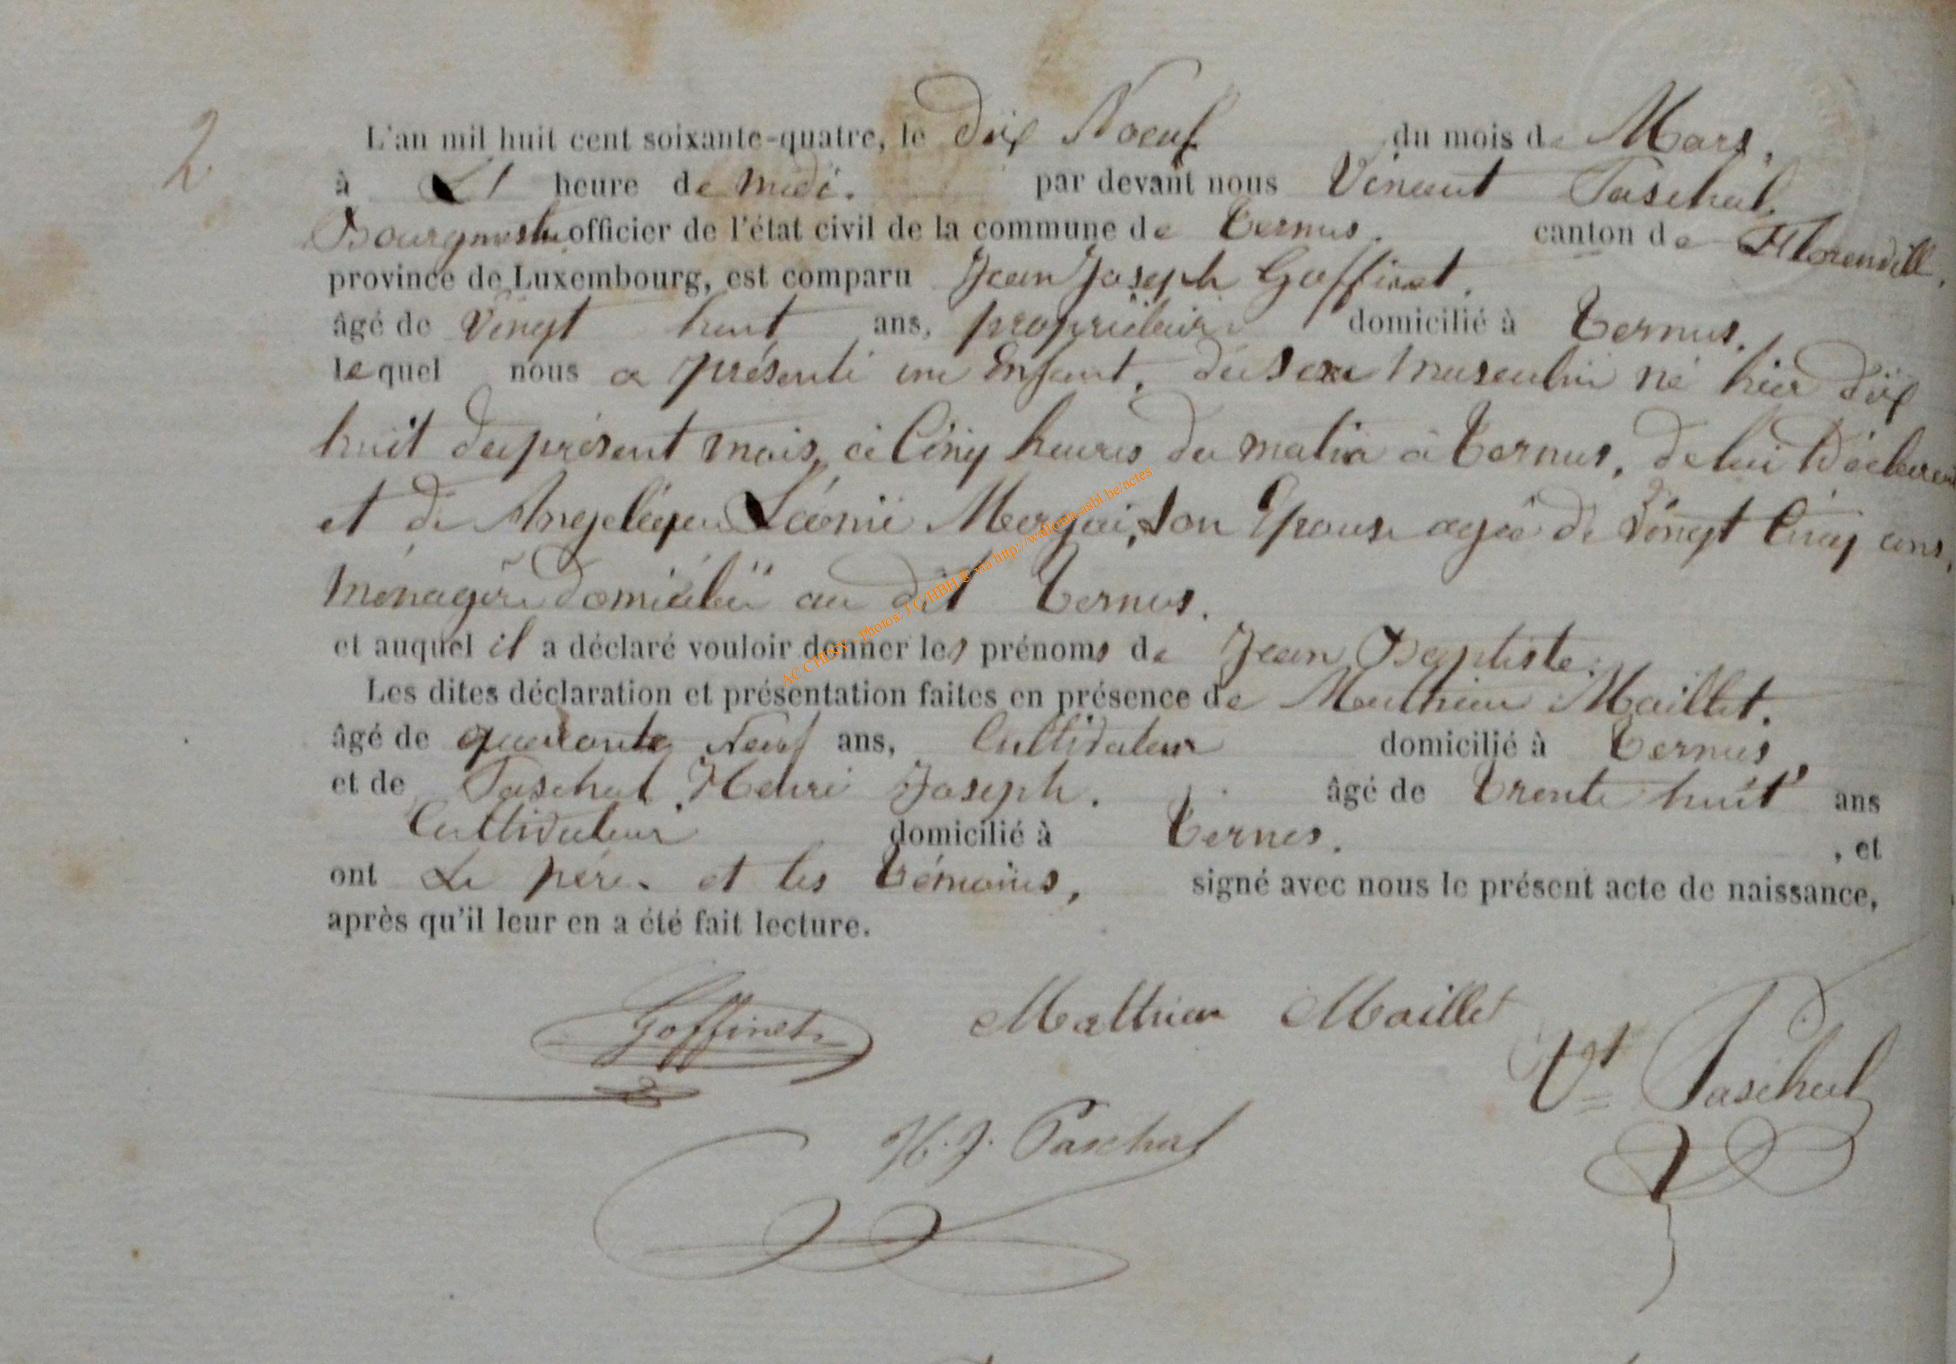 2
L'an mil huit cent soixante-quatre, le dix Noeuf du mois de Mars,
à L' heure de midi. par devant nous Vincent Paschal,
Bourgmestre officier de l'état civil de la commune de Termes. canton de Florenvill,
province de Luxembourg, est comparu Jean Joseph Goffinet,
âgé de Vingt huit ans, propriétaire domicilié à Termes.
lequel nous a présenté un Enfant, du sexe masculin né hier dix
huit du présent mois, à Cinq heures du matin à Termes, de lui Déclarant
et de Angelique Léonie Merjai, son Epouse agée de Vingt Cinq ans,
ménagère domiciliée au dit Termes.
et auquel il a déclaré vouloir donner les prénoms de Jean Baptiste.
Les dites déclaration et présentation faites en présence de Mathieu Maillet.
âgé de quarante Neuf ans, Cultivateur domicilié à Termes
et de Paschal, Henri Joseph. âgé de Trente huit ans
Cultivateur domicilié à Termes. , et
ont Le père et les témoins, signé avec nous le présent acte de naissance,
après qu'il leur en a été fait lecture.
Goffinet Mathieu Maillet
Vt Paschal
H. J. Paschal
via http://wallonia-asbl.be/actes